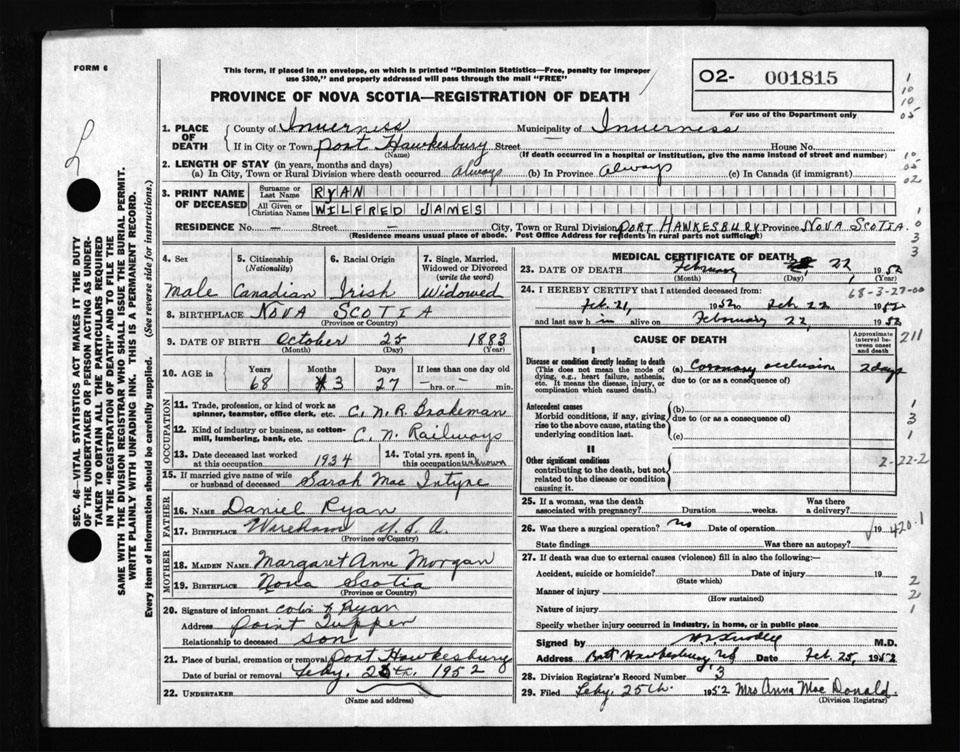 FORM 6
This form, if placed in an envelope, on which is printed "Dominion Statistics—Free, penalty for improper
use $300," and properly addressed will pass through the mail "FREE"
PROVINCE OF NOVA SCOTIA—REGISTRATION OF DEATH
02- 001815
For use of the Department only
1. PLACE OF DEATH County of Inverness Municipality of Inverness
If in City or Town Port Hawkesbury Street House No.
(Name) (If death occurred in a hospital or institution, give the name instead of street and number)
2. LENGTH OF STAY (in years, months and days)
(a) In City, Town or Rural Division where death occurred Always (b) In Province Always (c) In Canada (if immigrant)
3. PRINT NAME OF DECEASED Surname or Last Name RYAN
All Given or Christian Names WILFRED JAMES
RESIDENCE No. — Street — City, Town or Rural Division PORT HAWKESBURY Province NOVA SCOTIA.
(Residence means usual place of abode. Post Office Address for residents in rural parts not sufficient)
4. Sex Male
5. Citizenship (Nationality) Canadian
6. Racial Origin Irish
7. Single, Married, Widowed or Divorced (write the word) Widowed
8. BIRTHPLACE NOVA SCOTIA
(Province or Country)
9. DATE OF BIRTH October 25 1883
(Month) (Day) (Year)
10. AGE in Years 68 Months 3 Days 27 If less than one day — hrs. or — min.
OCCUPATION
11. Trade, profession, or kind of work as spinner, teamster, office clerk, etc. C.N.R. Brakeman
12. Kind of industry or business, as cotton-mill, lumbering, bank, etc. C.N. Railways
13. Date deceased last worked at this occupation 1934
14. Total yrs. spent in this occupation unknown
15. If married give name of wife or husband of deceased Sarah Mac Intyre
FATHER
16. NAME Daniel Ryan
17. BIRTHPLACE Wareham U.S.A.
(Province or Country)
MOTHER
18. MAIDEN NAME Margaret Anne Morgan
19. BIRTHPLACE Nova Scotia
(Province or Country)
20. Signature of informant Ryan
Address Point Tupper
Relationship to deceased son
21. Place of burial, cremation or removal Port Hawkesbury
Date of burial or removal Feby. 25th. 1952
22. UNDERTAKER
(Name and address)
MEDICAL CERTIFICATE OF DEATH
23. DATE OF DEATH February 22 1952
(Month) (Day) (Year)
24. I HEREBY CERTIFY that I attended deceased from: 68-3-27-00
Feb. 21, 1952 to Feb 22 1952
and last saw h im alive on February 22, 1952
CAUSE OF DEATH
Approximate interval between onset and death
211
I
Disease or condition directly leading to death
(This does not mean the mode of dying, e.g., heart failure, asthenia, etc. It means the disease, injury, or complication which caused death.)
(a) Coronary occlusion 2 days
due to (or as a consequence of)
Antecedent causes
Morbid conditions, if any, giving rise to the above cause, stating the underlying condition last.
(b)
due to (or as a consequence of)
(c)
II
Other significant conditions
contributing to the death, but not related to the disease or condition causing it.
2-22-2
25. If a woman, was the death associated with pregnancy? Duration weeks. Was there a delivery?
26. Was there a surgical operation? No Date of operation 19 420.1
State findings Was there an autopsy?
27. If death was due to external causes (violence) fill in also the following:—
Accident, suicide or homicide? Date of injury 19
(State which)
Manner of injury
(How sustained)
Nature of injury
Specify whether injury occurred in industry, in home, or in public place
Signed by M.D.
Address Port Hawkesbury, NS Date Feb. 25, 1952
28. Division Registrar's Record Number 3
29. Filed Feby. 25th. 1952 Mrs Anna Mac Donald.
(Division Registrar)
SEC. 46—VITAL STATISTICS ACT MAKES IT THE DUTY
OF THE UNDERTAKER OR PERSON ACTING AS UNDER-
TAKER TO OBTAIN ALL THE PARTICULARS REQUIRED
IN THE "REGISTRATION OF DEATH" AND TO FILE THE
SAME WITH THE DIVISION REGISTRAR WHO SHALL ISSUE THE BURIAL PERMIT.
WRITE PLAINLY WITH UNFADING INK. THIS IS A PERMANENT RECORD.
Every item of information should be carefully supplied. (See reverse side for instructions.)